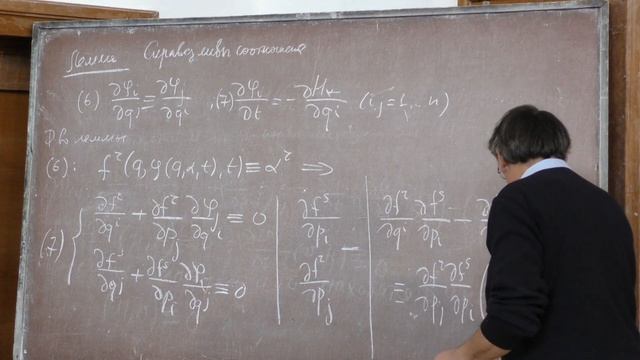 Лемма Справедливы соотношения
(6) ∂φ_i/∂q^j ≡ ∂φ_j/∂q^i , (7) ∂φ_i/∂t = − ∂H_*/∂q^i (i,j=1,...n)
Д-во леммы
(6): f^2(q, φ(q,α,t),t) ≡ α^2 ⇒
(7) { ∂f^2/∂q^i + ∂f^2/∂p_j ∂φ_j/∂q^i ≡ 0 | ∂f^s/∂p_i − | ∂f^2/∂q^i ∂f^s/∂p_i −
∂f^s/∂q^j + ∂f^s/∂p_i ∂φ_i/∂q^j ≡ 0 | ∂f^2/∂p_j | ≡ ∂f^2/∂p_j ∂f^s/∂p_i (